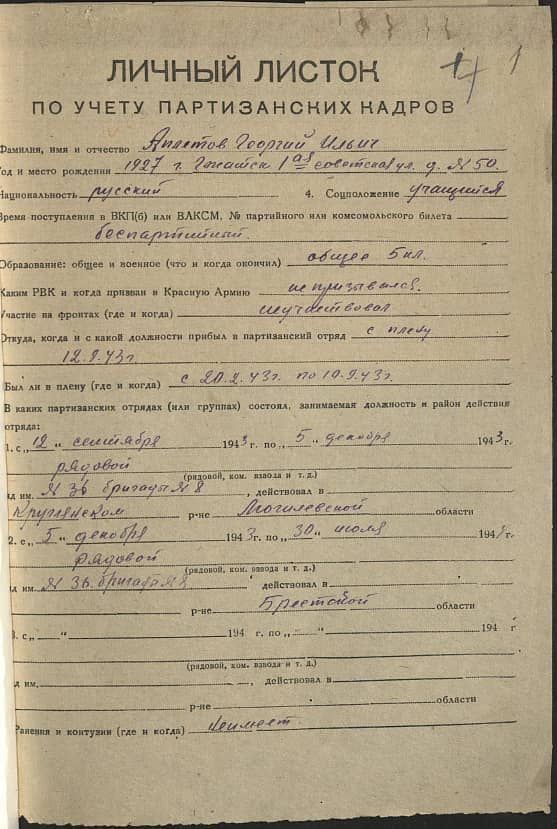 1
ЛИЧНЫЙ ЛИСТОК
ПО УЧЕТУ ПАРТИЗАНСКИХ КАДРОВ
Фамилия, имя и отчество Аплетов Георгий Ильич
Год и место рождения 1927 г. Гжатск 1ая советская ул. д. №50.
Национальность русский 4. Соцположение учащийся
Время поступления в ВКП(б) или ВЛКСМ, № партийного или комсомольского билета
беспартийный.
Образование: общее и военное (что и когда окончил) общее 5 кл.
Каким РВК и когда призван в Красную Армию не призывался.
Участие на фронтах (где и когда) неучаствовал
Откуда, когда и с какой должности прибыл в партизанский отряд с плену
12.9.43г.
Был ли в плену (где и когда) с 20.2.43г. по 10.9.43г.
В каких партизанских отрядах (или группах) состоял, занимаемая должность и район действия
отряда:
1. с „12" сентября 1943 г. по „5" декабря 1943 г.
рядовой
(рядовой, ком. взвода и т. д.)
д им. №36 бригады №8, действовал в
Круглянском р-не Могилевской области
2. с „5" декабря 1943 г. по „30" июля 194 г.
рядовой
(рядовой, ком. взвода и т. д.)
д им. №36. бригады №8, действовал в
р-не Брестской области
3. с „ " 194 г. по „ " 194 г
(рядовой, ком. взвода и т. д.)
д им. , действовал в
р-не области
Ранения и контузии (где и когда) неимеет.